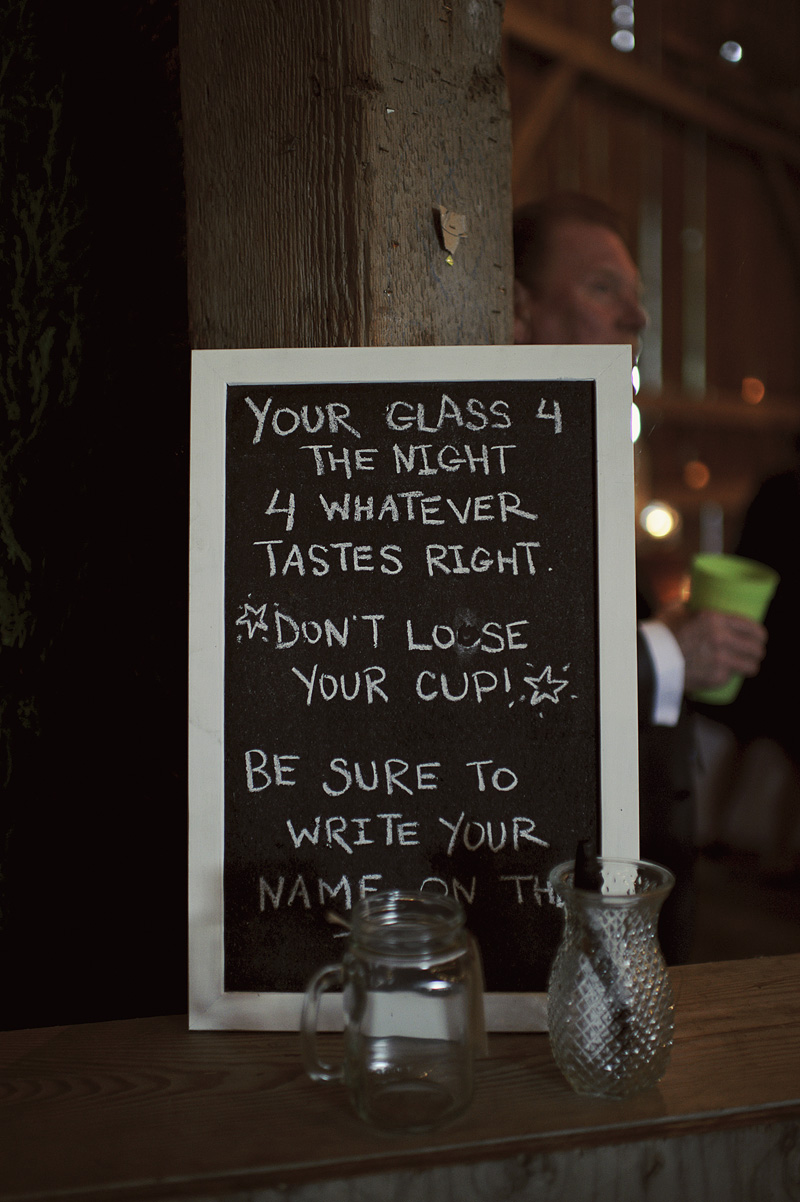 YOUR GLASS 4
THE NIGHT
4 WHATEVER
TASTES RIGHT.
DON'T LOOSE
YOUR CUP!
BE SURE TO
WRITE YOUR
NAME ON